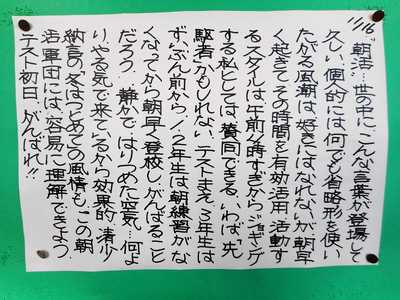 11/16
"朝活"…世の中に、こんな言葉が登場して
久しい。個人的には何でも省略形を使い
たがる風潮は、好きにはなれないが、朝早
く起きて、その時間を有効活用、活動す
るスタイルは、午前2時すぎから、ジョギング
する私としては、賛同できる。いわば"先
駆者"かもしれない。テストまえ、3年生は
ずいぶん前から、1、2年生は、朝練習がな
くなってから、朝早く登校し、がんばること
だろう。静かで、はりつめた空気…何よ
り、やる気で来ているから効果的。清少
納言の「冬はつとめて」の風情も、この朝
活軍団には、容易に理解できよう。
テスト初日、がんばれ!!